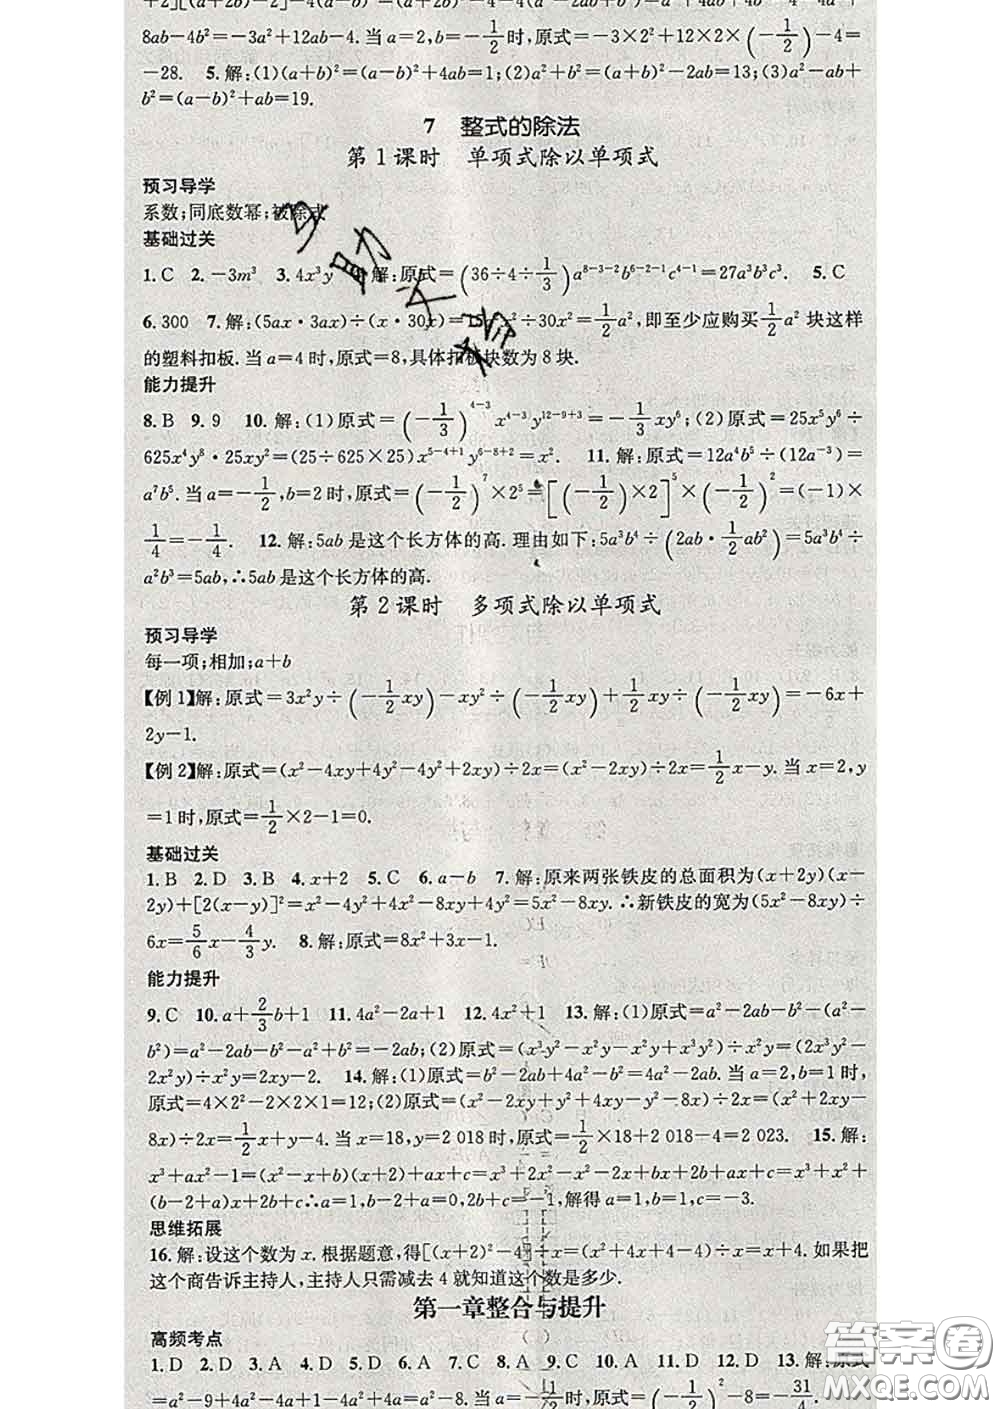 +2][(a+2b)-2]-4(a-b)=(a+2b)²-4-4(a²-2ab+b²)=a²+4ab+4b²-4-4a²+
8ab-4b²=-3a²+12ab-4.当a=2,b=-1/2时,原式=-3×2²+12×2×(-1/2)-4=
-28. 5.解:(1)(a+b)²=(a-b)²+4ab=1;(2)a²+b²=(a-b)²-2ab=13;(3)a²-ab+
b²=(a-b)²+ab=19.
7 整式的除法
第1课时 单项式除以单项式
预习导学
系数;同底数幂;被除式
基础过关
1.C 2.-3m³ 3.4x³y 解:原式=(36÷4÷1/3)a⁸⁻³⁻²b⁶⁻²⁻¹c⁴⁻¹=27a³b³c³. 5.C
6.300 7.解:(5ax·3ax)÷(x·30x)=15a²x²÷30x²=1/2a²,即至少应购买1/2a²块这样
的塑料扣板.当a=4时,原式=8,具体扣板块数为8块.
能力提升
8.B 9.9 10.解:(1)原式=(-1/3)⁴⁻³x⁴⁻³y¹²⁻⁹⁺³=-1/3xy⁶;(2)原式=25x⁵y⁶÷
625x⁴y⁸·25xy²=(25÷625×25)x⁵⁻⁴⁺¹y⁶⁻⁸⁺²=x². 11.解:原式=12a⁴b⁵÷(12a⁻³)=
a⁷b⁵.当a=-1/2,b=2时,原式=(-1/2)⁷×2⁵=[(-1/2)×2]⁵×(-1/2)²=(-1)×
1/4=-1/4. 12.解:5ab是这个长方体的高.理由如下:5a³b⁴÷(2ab·1/2ab²)=5a³b⁴÷
a²b³=5ab,∴5ab是这个长方体的高.
第2课时 多项式除以单项式
预习导学
每一项;相加;a+b
【例1】解:原式=3x²y÷(-1/2xy)-xy²÷(-1/2xy)+1/2xy÷(-1/2xy)=-6x+
2y-1.
【例2】解:原式=(x²-4xy+4y²-4y²+2xy)÷2x=(x²-2xy)÷2x=1/2x-y.当x=2,y
=1时,原式=1/2×2-1=0.
基础过关
1.B 2.D 3.B 4.x+2 5.C 6.a-b 7.解:原来两张铁皮的总面积为(x+2y)(x-
2y)+[2(x-y)]²=x²-4y²+4x²-8xy+4y²=5x²-8xy.∴新铁皮的宽为(5x²-8xy)÷
6x=5/6x-4/3y. 8.解:原式=8x²+3x-1.
能力提升
9.C 10.a+2/3b+1 11.4a²-2a+1 12.4x²+1 13.解:(1)原式=a²-2ab-b²-(a²-
b²)=a²-2ab-b²-a²+b²=-2ab;(2)原式=(x³y²-x²y-x²y+x³y²)÷x²y=(2x³y²-
2x²y)÷x²y=2xy-2. 14.解:(1)原式=b²-2ab+4a²-b²=4a²-2ab.当a=2,b=1时,
原式=4×2²-2×2×1=12;(2)原式=(x²-2xy+y²+4xy-y²-8x)÷2x=(x²+2xy-
8x)÷2x=1/2x+y-4.当x=18,y=2 018时,原式=1/2×18+2 018-4=2 023. 15.解:
x³+ax²=(x²-x+b)(x+2)+ax+c=x³+2x²-x²-2x+bx+2b+ax+c=x³+x²+
(b-2+a)x+2b+c∴a=1,b-2+a=0,2b+c=-1,解得a=1,b=1,c=-3.
思维拓展
16.解:设这个数为x.根据题意,得[(x+2)²-4]÷x=(x²+4x+4-4)÷x=x+4.如果把
这个商告诉主持人,主持人只需减去4就知道这个数是多少.
第一章整合与提升
高频考点
1.D 2.D 3.A 4.D 5.D 6.A 7.C 8.A 9.D 10.D 11.D 12.D 13.解:原式
=a²-9+4a-a²+1-4a²+4a²-4a=a²-8.当a=-1/2时,原式=(-1/2)²-8=-31/4.
答案圈
MXQE.COM